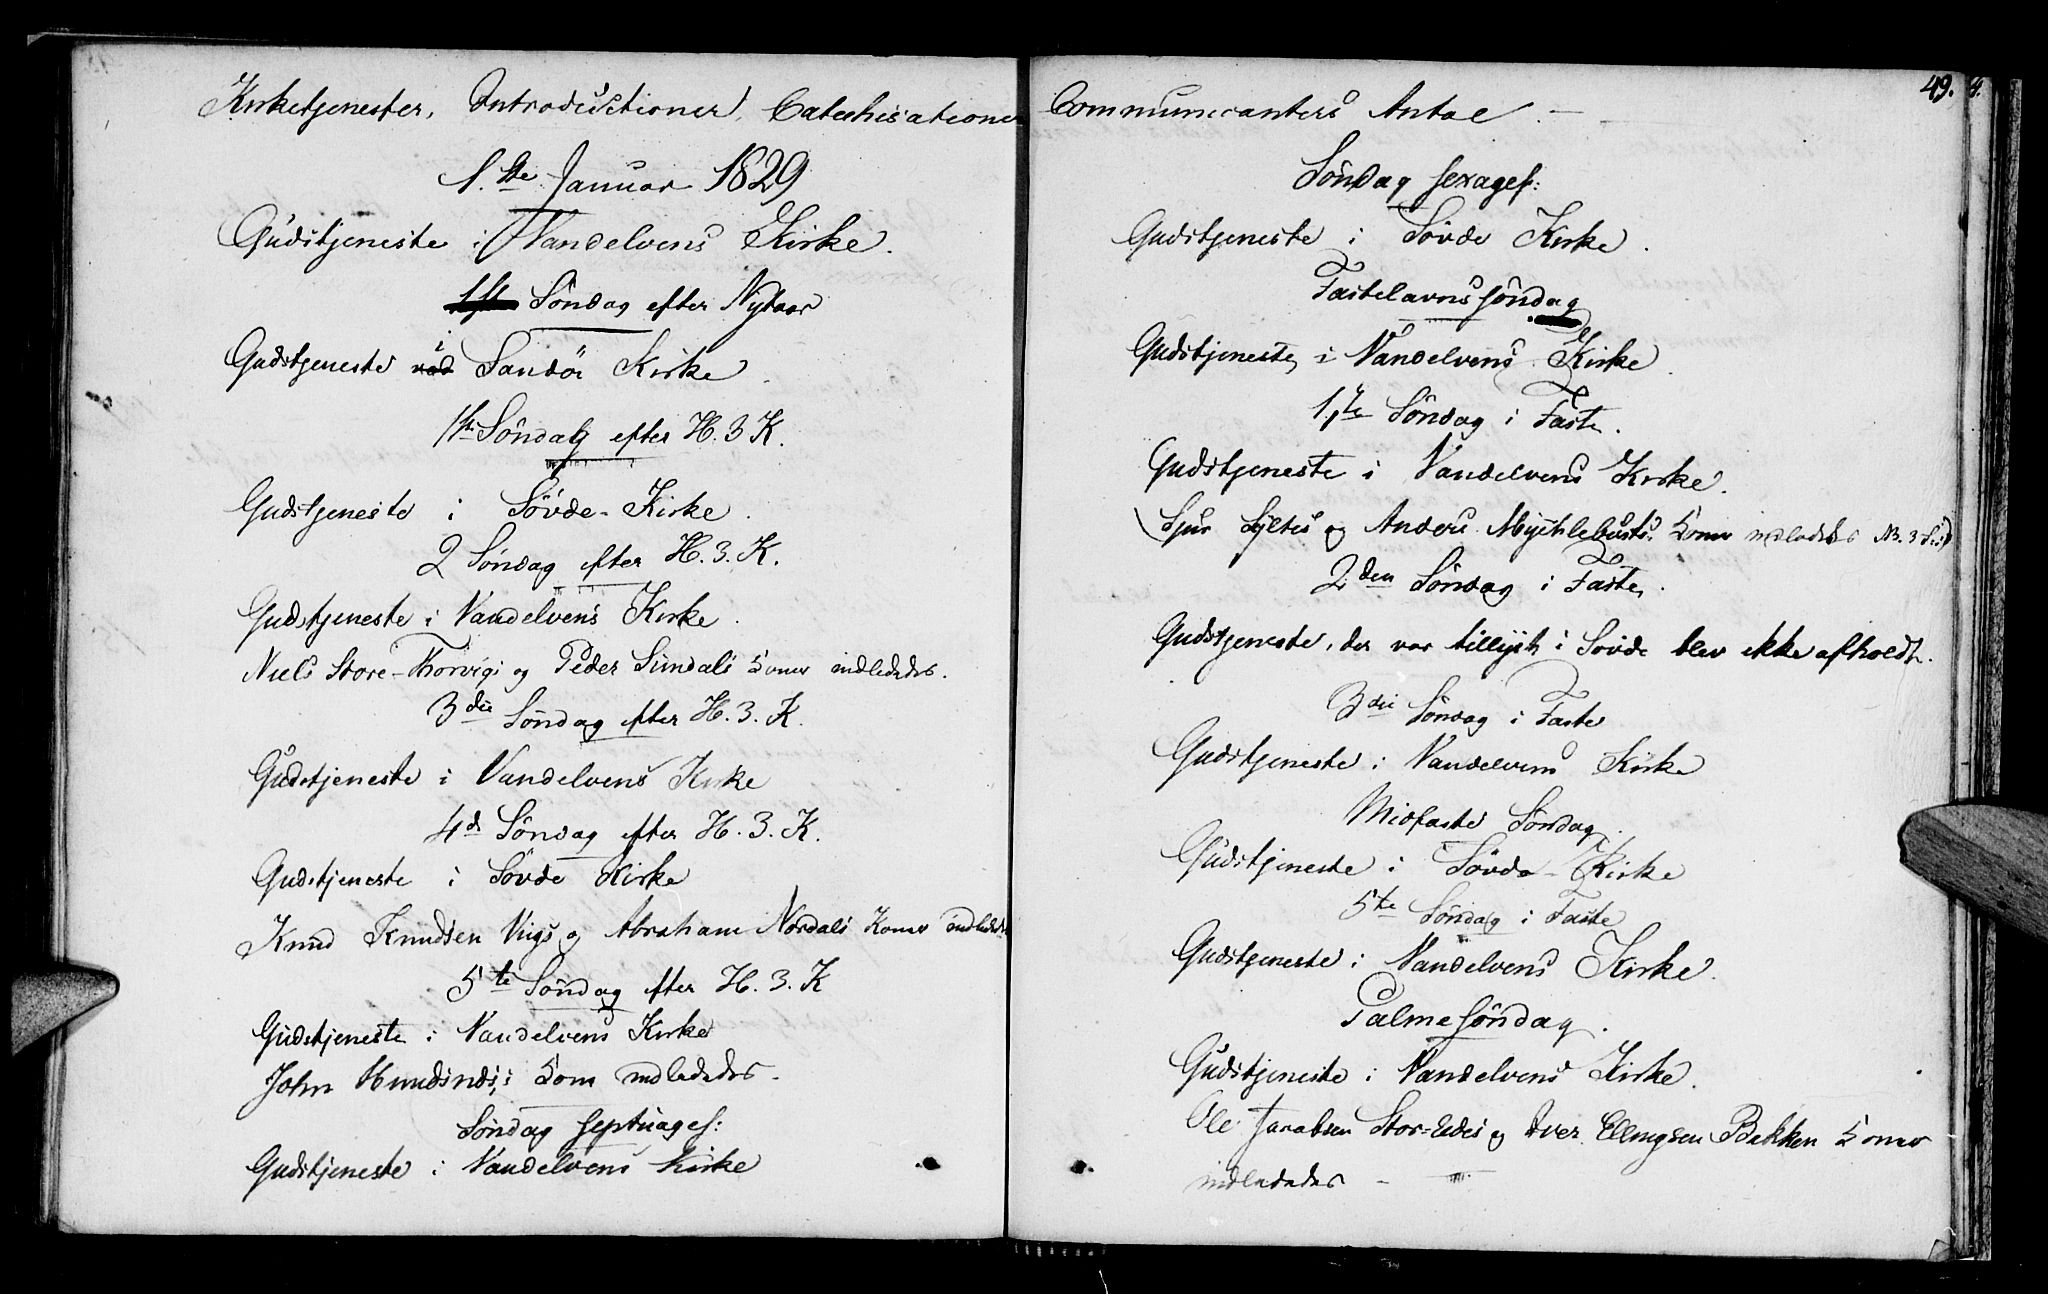 Kirketjenester, Introductioner, Catechisationer
1.ste Januar 1829
Gudstjeneste i Vandelvens Kirke.
1ste Søndag efter Nytaar
Gudstjeneste ved i Sandöe Kirke
1ste Søndag efter H. 3 K.
Gudstjeneste i Sövde-Kirke.
2 Søndag efter H. 3. K.
Gudstjeneste i Vandelvens Kirke.
Niels Store-Thorvigs og Peder Sundals Koner indlededes.
3die Søndag efter H. 3. K.
Gudstjeneste i Vandelvens Kirke
4d Søndag efter H. 3. K.
Gudstjeneste i Sövde Kirke
Knud Knudsen Vigs og Abraham Nordals Koner indlededes
5te Søndag efter H. 3. K
Gudstjeneste i Vandelvens Kirke
John Kone indlededes.
Søndag Septuages:
Gudstjeneste i Vandelvens Kirke
49.
Communicanters Antal. —
Søndag Sexages:
Gudstjeneste i Sövde Kirke.
Fastelavns Søndag
Gudstjeneste i Vandelvens Kirke.
1.ste Søndag i Faste.
Gudstjeneste i Vandelvens Kirke.
Sjur Syltes og Anders Mychlebusts Koner indlededes
2den Søndag i Faste.
Gudstjeneste, der var tillyst i Sövde blev ikke afholdt.
3die Søndag i Faste
Gudstjeneste i Vandelvens Kirke
Midfaste Søndag.
Gudstjeneste i Sövde-Kirke
5te Søndag i Faste
Gudstjeneste i Vandelvens Kirke.
Palme Søndag.
Gudstjeneste i Vandelvens Kirke.
Ole Jacobsen og Iver Ellingsen Bakken Koner
indlededes —